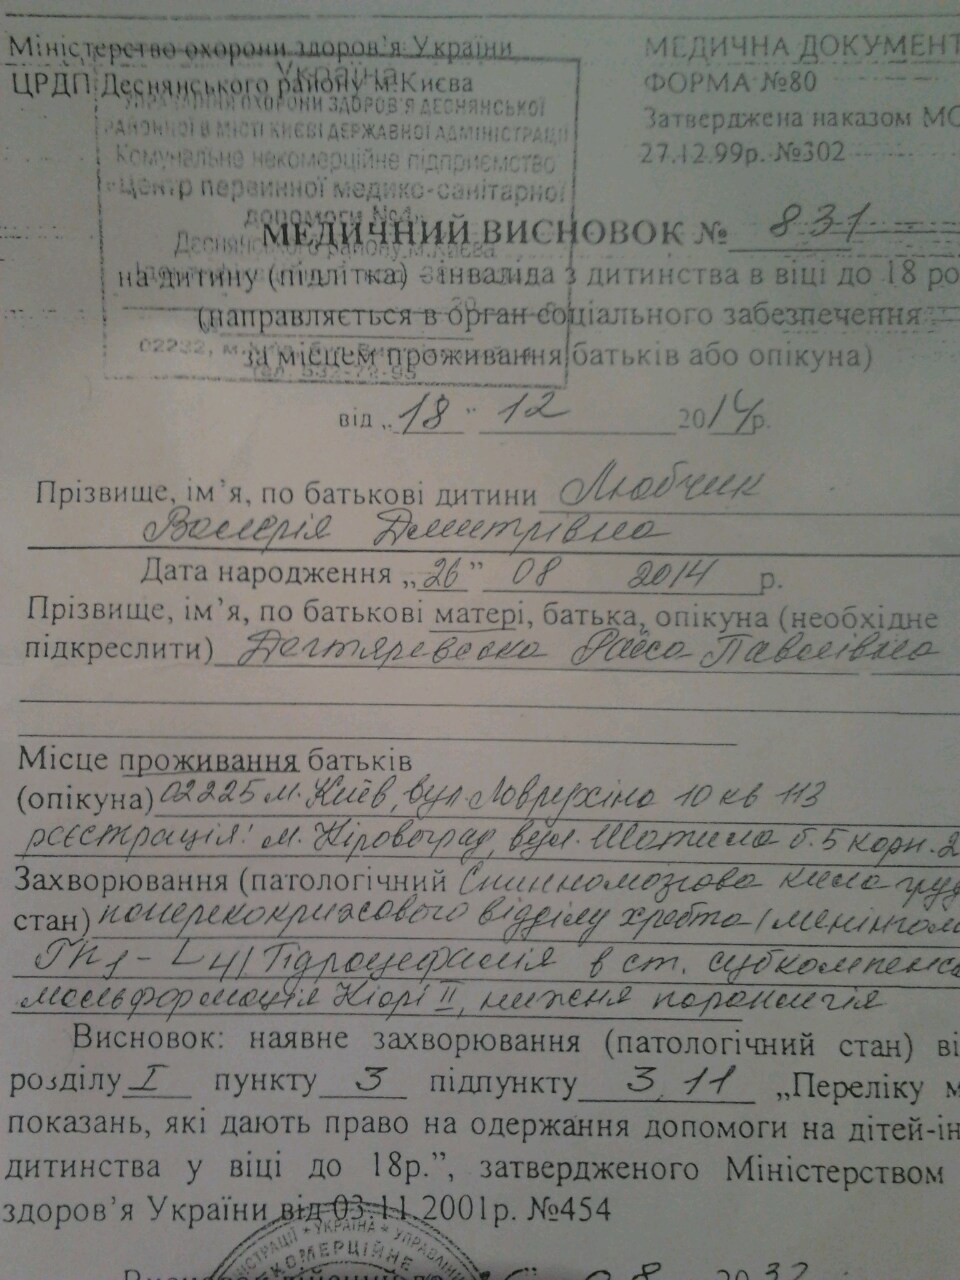 Міністерство охорони здоров'я України
ЦРДП Деснянського району м.Києва
МЕДИЧНА ДОКУМЕНТ
ФОРМА №80
Затверджена наказом МО
27.12.99р. №302
Україна
УПРАВЛІННЯ ОХОРОНИ ЗДОРОВ'Я ДЕСНЯНСЬКОЇ
РАЙОННОЇ В МІСТІ КИЄВІ ДЕРЖАВНОЇ АДМІНІСТРАЦІЇ
Комунальне некомерційне підприємство
«Центр первинної медико-санітарної
допомоги №4»
Деснянського району м.Києва
02232, м.
тел. 532-72-95
МЕДИЧНИЙ ВИСНОВОК № 831
на дитину (підлітка) - інваліда з дитинства в віці до 18 ро
(направляється в орган соціального забезпечення
за місцем проживання батьків або опікуна)
від „18" 12 2014р.
Прізвище, ім'я, по батькові дитини Любчик
Валерія Дмитрівна
Дата народження „26" 08 2014 р.
Прізвище, ім'я, по батькові матері, батька, опікуна (необхідне
підкреслити) Дегтяревська Раїса Павлівна
Місце проживання батьків
(опікуна) 02225 м. Київ, вул. Лаврухіна 10 кв 113
реєстрація: м. Кіровоград, вул. Шатила б.5 корп.2
Захворювання (патологічний Спинномозкова кила груд
стан) поперекокрижового відділу хребта (менінгом
Th1 - L4) Гідроцефалія в ст. субкомпенса
мальформація Кіарі II, нижня параплегія
Висновок: наявне захворювання (патологічний стан) ві
розділу I пункту 3 підпункту 3.11 „Переліку м
показань, які дають право на одержання допомоги на дітей-ін
дитинства у віці до 18р.", затвердженого Міністерством
здоров'я України від 03.11.2001р. №454
УКРАЇНА * УПРАВЛІН
КОМЕРЦІЙНЕ
08 2032